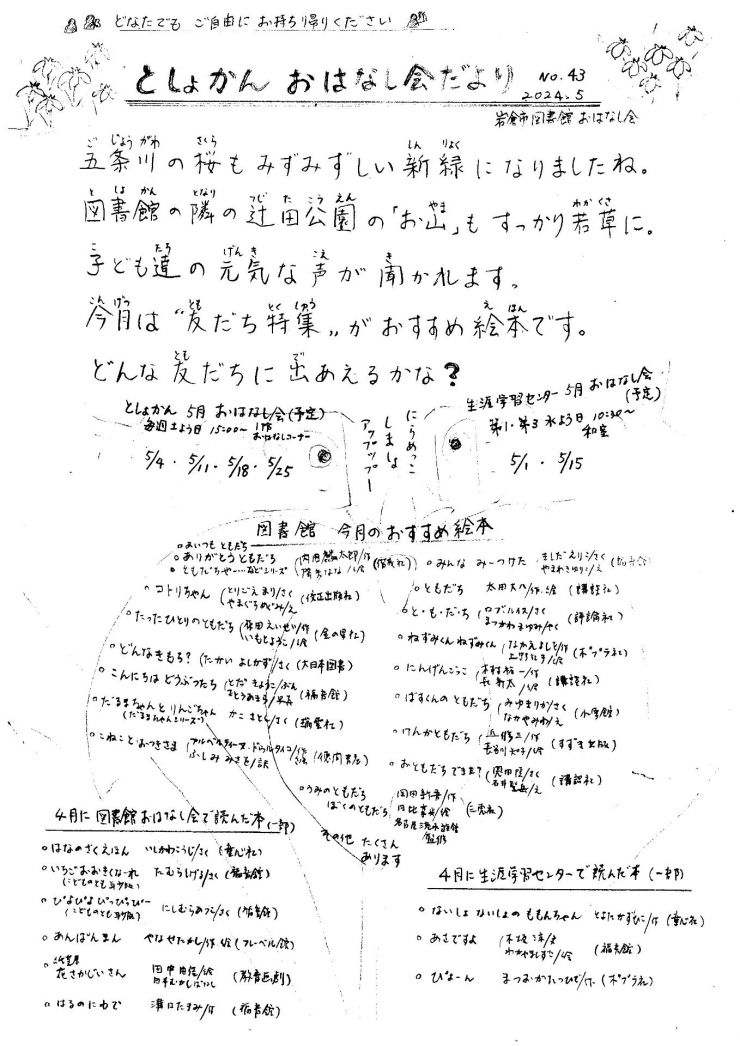 どなたでも ご自由に お持ち帰りください
としょかん おはなし会だより No.43
2024.5
岩倉市図書館 おはなし会
五条川の桜もみずみずしい新緑になりましたね。
図書館の隣の辻田公園の「お山」も すっかり若草に。
子ども達の元気な声が聞かれます。
今月は“友だち特集„がおすすめ絵本です。
どんな友だちに出あえるかな?
としょかん 5月 おはなし会(予定)
毎週土よう日 15:00~ 1階 おはなしコーナー
5/4 ・ 5/11 ・ 5/18 ・ 5/25
にらめっこ
しましょ
アップップー
生涯学習センター 5月 おはなし会(予定)
第1・第3 水よう日 10:30~ 和室
5/1 ・ 5/15
図書館 今月のおすすめ絵本
○あいつもともだち
○ありがとうともだち (内田麟太郎/作 降矢なな/絵) (偕成社)
○ともだちや……などシリーズ
○コトリちゃん (とりごえまり/さく やまぐちめぐみ/え) (佼正出版社)
○たったひとりのともだち (原田えいせい/作 いもとようこ/絵) (金の星社)
○どんなきもち? (たかいよしかず/さく) (大日本図書)
○こんにちは どうぶつたち (とだきょうこ/ぶん さとうあきら/写真) (福音館)
○だるまちゃんとりんごちゃん かこさとし/さく (瑞雲社)
(だるまちゃんシリーズ)
○こねこと・おつきさま (アルベルティーヌ・ドゥルタイコ/作 ふしみみさを/訳) (徳間書店)
○みんな みーつけた きしだえりこ/さく やまわきゆりこ/え (福音館)
○ともだち 太田大八/作・絵 (講談社)
○と・も・だ・ち (ロブ・ルイス/さく まつかわまゆみ/やく) (評論社)
○ねずみくん ねずみくん (なかえよしを/作 上野紀子/絵) (ポプラ社)
○にんげんごっこ (木村裕一/作 長新太/絵) (講談社)
○ばすくんのともだち (みゆきりか/さく なかやみわ/え) (小学館)
○けんかともだち (長谷川知子/絵) (すずき出版)
○おともだちできた? (恩田陸/さく 石井聖岳/え) (講談社)
○うみのともだち
ぼくのともだち 名古屋港水族館 監修
その他 たくさん
あります
4月に図書館おはなし会で読んだ本(一部)
○はなのさくえほん いしかわこうじ/さく (童心社)
○いちごおおきくなーれ たむらしげる/さく (福音館)
(こどものとも年少版)
○ぴよぴよ ぴっぴっぴー にしむらあつこ/さく (福音館)
(こどものとも年少版)
○あんぱんまん やなせたかし/作・絵 (フレーベル館)
○紙芝居 花さかじいさん (教育画劇)
○はるのにわで 澤口たまみ/作 (福音館)
4月に生涯学習センターで読んだ本 (一部)
○ないしょ ないしょの ももんちゃん とよたかずひこ/作 (童心社)
○あさですよ (木坂涼/文 わかやましずこ/絵) (福音館)
○ぴょーん まつおかたつひで/作 (ポプラ社)